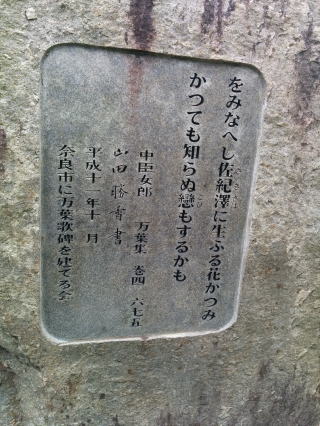 をみなへし佐紀澤に生ふる花かつみ
かつても知らぬ戀もするかも
中臣女郎 万葉集 巻四 六七五
山田勝香書
平成十一年十一月
奈良市に万葉歌碑を建てる会